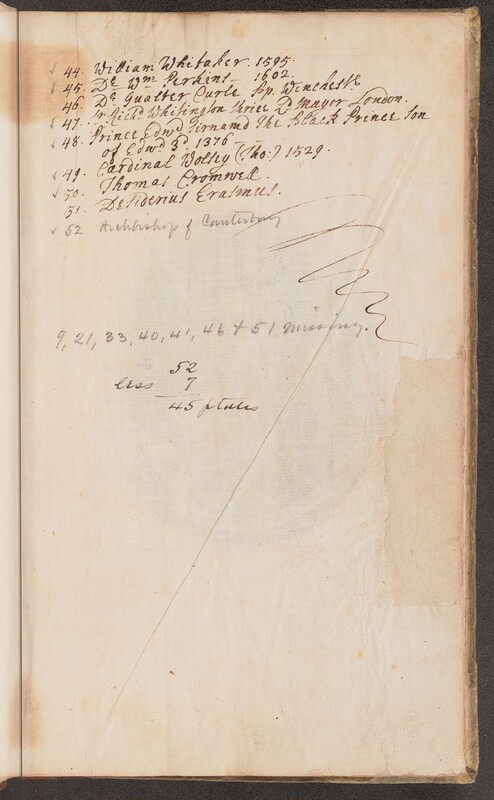 44. William Whitaker. 1595.
45. Dr. Wm Perkins — 1602.
46. Dr Gualter Curle Bp. Winchestr.
47. Sr. Richd Whitington thrice Ld mayor London.
48. Prince Edwd Sirnamd The Black Prince Son
of Edwd 3d. 1376 —
49. Cardinal Wolsey (Tho:) 1529.
50. Thomas Cromwell.
51. Desiderius Erasmus.
52 Archbishop of Canterbury
9, 21, 33, 40, 41, 46 & 51 missing.
52
less 7
45 plates